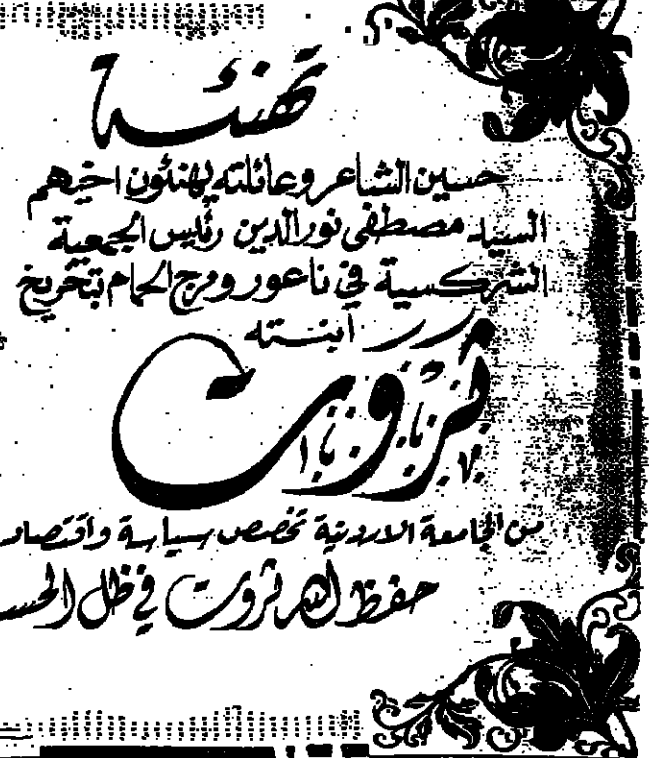 تهنئة
حسين الشاعر وعائلته يهنئون اخيهم
السيد مصطفى نور الدين رئيس الجمعية
الشركسية في ناعور ومرج الحمام بتخريج
ابنته
ثروت
من الجامعة الاردنية تخصص سياسة واقتصاد
حفظ الله ثروت في ظل